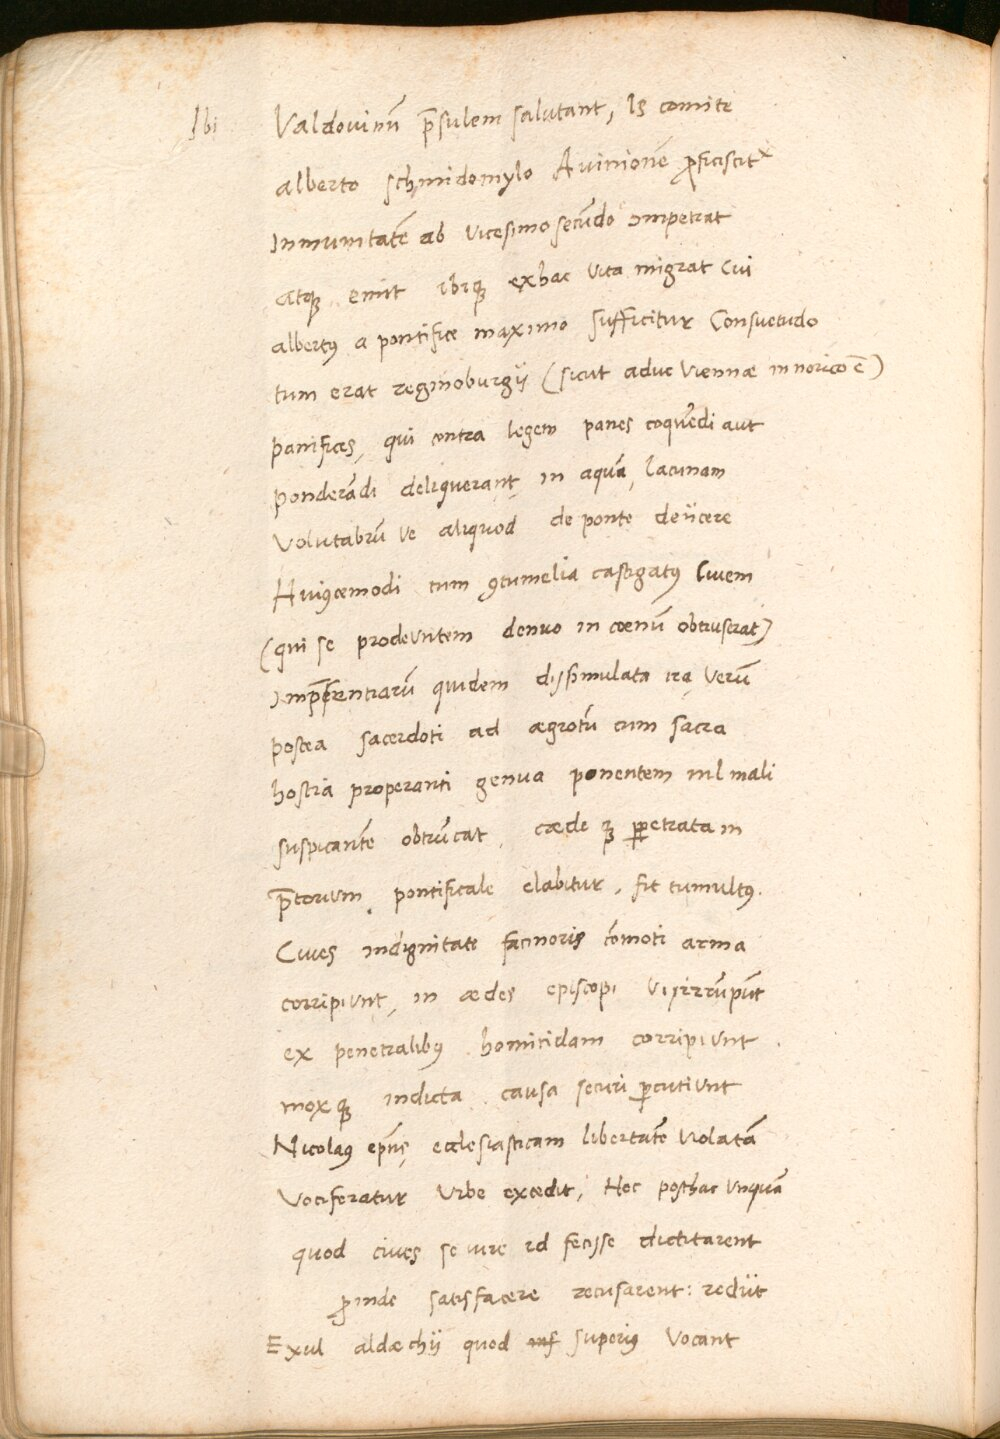 Ibi Valdovinū p̄sulem salutant, Is comite
alberto schmidomylo Avinionē ꝓficiscit᷑
Inmunitatē ab vicesimo secūdo impetrat
atqꝫ emit ibiqꝫ ex hac vita migrat Cui
albertꝰ a pontifice maximo sufficitur Consuetudo
tum erat reginoburgij (sicut aduc viennæ in norico ē)
panifices, qui contra legem panes coquēdi aut
ponderādi deliquerant, in aquā, lacunam
Volutabrū ve aliquod de ponte deijcere
Huiꝰcemodi tum ꝯtumelia castigatꝰ Civem
(qui se prodeuntem denuo in cœnū obtruserat)
quidem dissimulata ira, verū
postea sacerdoti ad ægrotū cum sacra
hostia properanti genua ponentem nil mali
suspicantē obtrūcat, cæde qꝫ ꝑpetrata in
p̄torium pontificale elabitur, fit tumultꝰ.
Cives indignitate facinoris cōmoti arma
corripiunt, in ædes episcopi vi irrūpūt
ex penetralibꝰ homicidam corripiunt.
moxqꝫ indicta causa securi ꝑcutiunt
Nicolaꝰ ep̄us ecclesiasticam libertatē violatā
Vociferatur urbe excedit, Nec posthac unquā
quod cives se iure id fecisse dictitarent
ꝓinde satisfacere recusarent: redijt
Exul aldæchij quod inf superiꝰ vocant